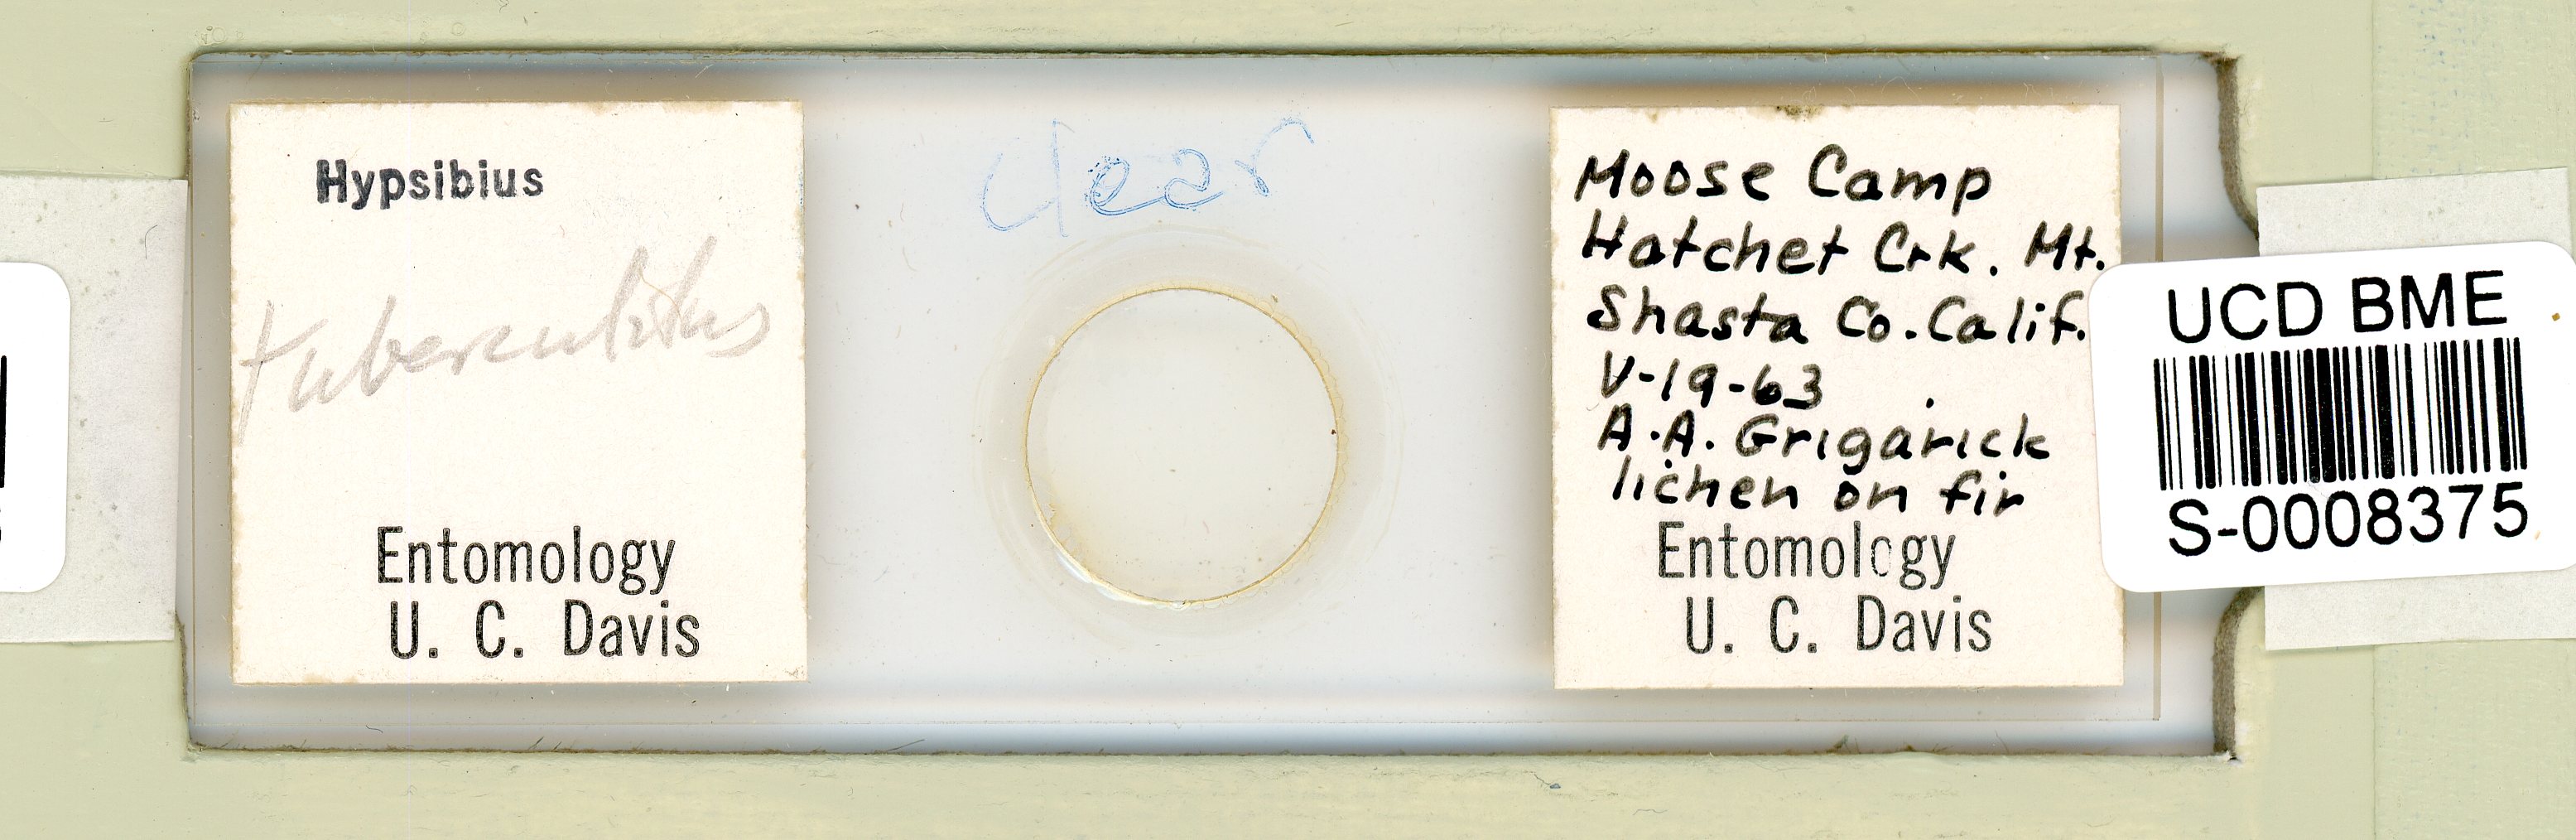 Hypsibius
tuberculatus
Entomology
U. C. Davis
clear
Moose Camp
Hatchet Crk. Mt.
Shasta Co. Calif.
V-19-63
A.A. Grigarick
lichen on fir
Entomology
U. C. Davis
UCD BME
S-0008375